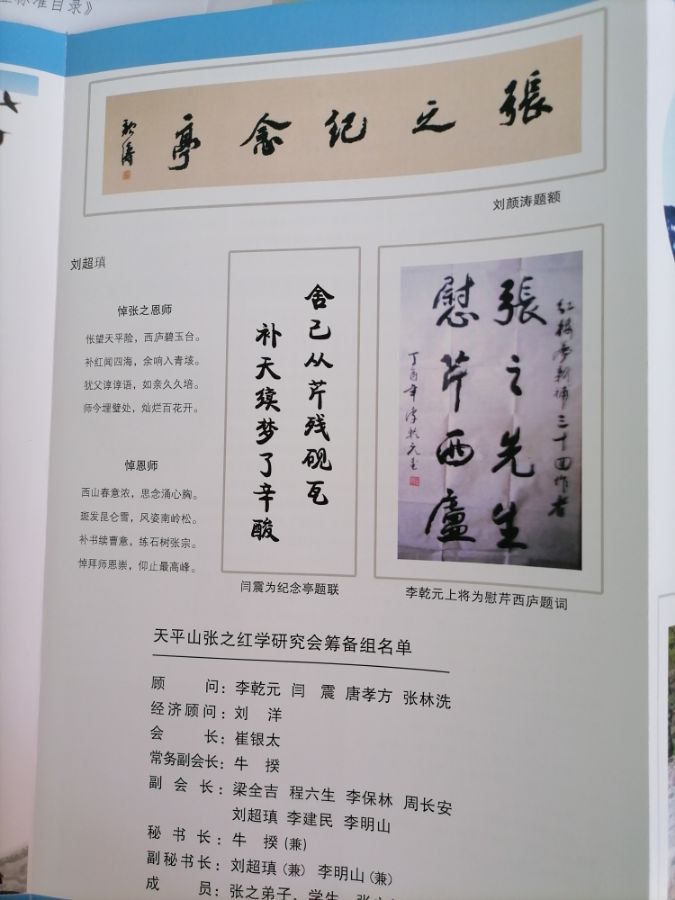 标准目录》
張之纪念亭
刘颜涛题额
刘超瑱
悼张之恩师
怅望天平险，西庐碧玉台。
补红闻四海，余响入青垓。
犹父谆谆语，如亲久久培。
师今埋璧处，灿烂百花开。
悼恩师
西山春意浓，思念涌心胸。
斑发昆仑雪，风姿南岭松。
补书续曹意，练石树张宗。
悼拜师恩崇，仰止最高峰。
舍己从芹残砚瓦
补天续梦了辛酸
闫震为纪念亭题联
红楼梦新補三十回作者
張之先生
慰芹西廬
丁酉年李乾元书
李乾元上将为慰芹西庐题词
天平山张之红学研究会筹备组名单
顾问：李乾元 闫震 唐孝方 张林洗
经济顾问：刘洋
会长：崔银太
常务副会长：牛揆
副会长：梁全吉 程六生 李保林 周长安
刘超瑱 李建民 李明山
秘书长：牛揆（兼）
副秘书长：刘超瑱（兼） 李明山（兼）
成员：张之弟子、学生、张